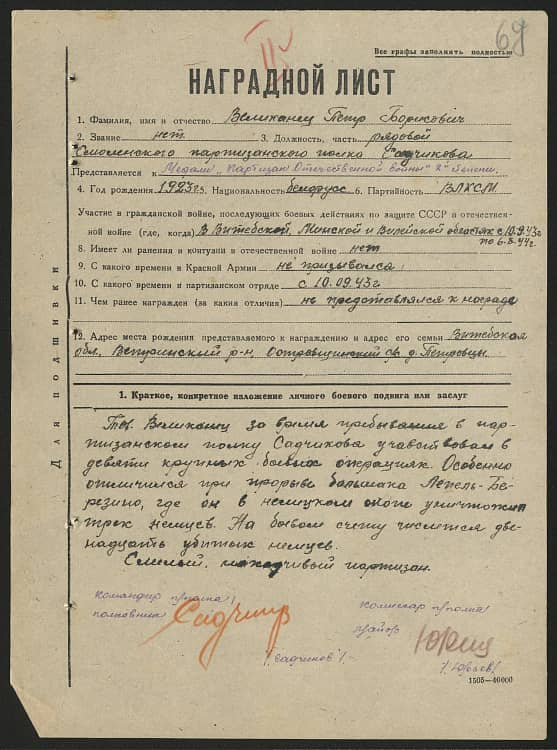 69
Все графы заполнять полностью
НАГРАДНОЙ ЛИСТ
1. Фамилия, имя и отчество Великанец Петр Борисович
2. Звание нет 3. Должность, часть рядовой
Смоленского партизанского полка Садчикова
Представляется к Медали "Партизан Отечественной войны" 2й степени
4. Год рождения 1923г 5. Национальность белорусс 6. Партийность ВЛКСМ
Участие в гражданской войне, последующих боевых действиях по защите СССР и отечествен-
ной войне (где, когда) В Витебской, Минской и Вилейской областях с 10.9.43г
по 6.5.44г.
8. Имеет ли ранения и контузии в отечественной войне нет
9. С какого времени в Красной Армии не призывался
10. С какого времени в партизанском отряде с 10.09.43г
11. Чем ранее награжден (за какия отличия) не представлялся к награде
12. Адрес места рождения представляемого к награждению и адрес его семьи Витебская
обл. Ветринский р-н, с/с д. Петровцы.
Для подшивки
1. Краткое, конкретное изложение личного боевого подвига или заслуг
Тов. Великанец за время пребывания в пар-
тизанском полку Садчикова учавствовал в
девяти крупных боевых операциях. Особенно
отличился при прорыве большака Лепель-Бе-
резино, где он в немецком окопе уничтожил
трех немцев. На боевом счету числится две-
надцать убитых немцев.
Смелый, находчивый партизан.
Командир п/полка
полковник Садчик
/Садчиков/
Комиссар п/полка
майор Юрьев
/Юрьев/
1505—40000